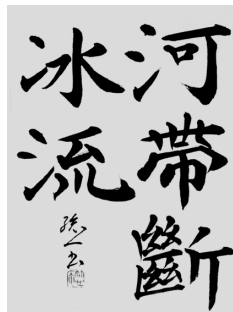 河帶斷
冰流